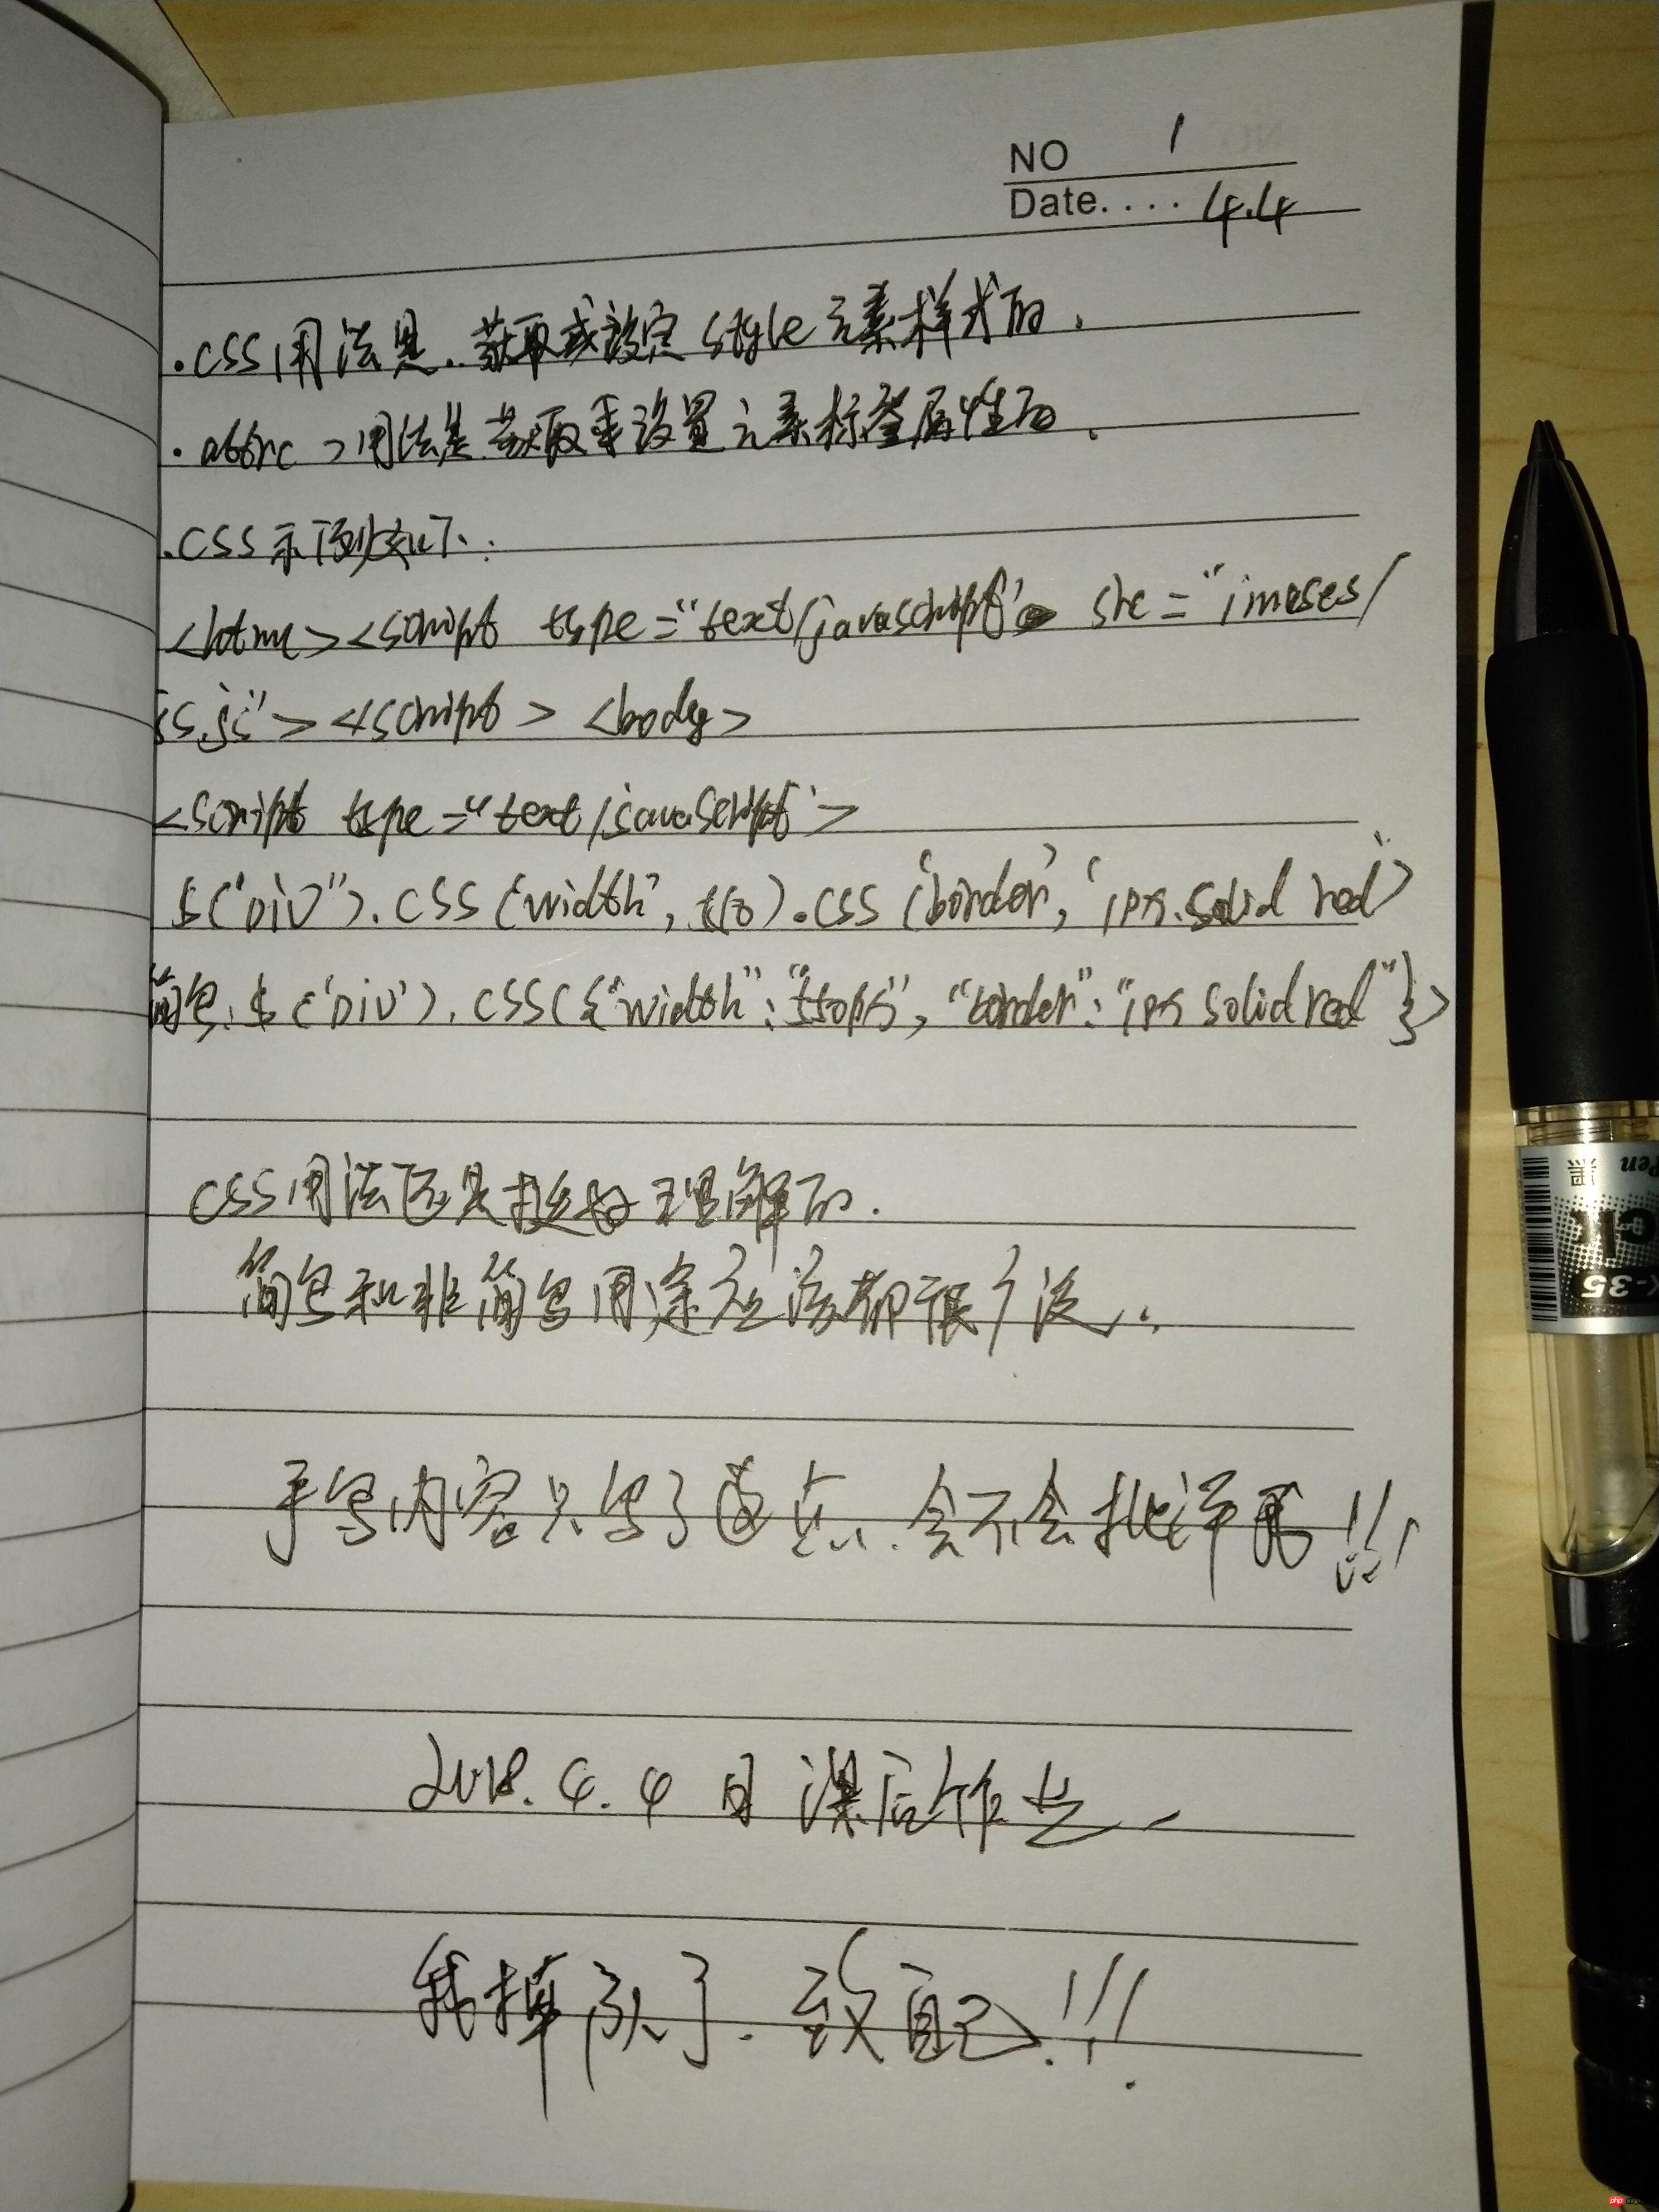 NO 1
Date.... 4.4
·CSS用法是.获取或设定 style元素样式的.
·attrc >用法是获取来设置元素标签属性的.
.CSS示例如下:
<html><script type="text/javascript" src="images/
js.js"></script> <body>
<script type="text/javascript">
$("Div").css("width", ).css('border', '1px.solid red')
简写:$('Div').css({"width": , "border":"1px solid red"})
CSS用法还是挺好理解的.
简写和非简写用途应该都很广泛...
手写内容只写了这点.会不会批评我!!!
2018.4.4日课后作业
我掉队了.致自己!!!
Pen
黑
K-35
php